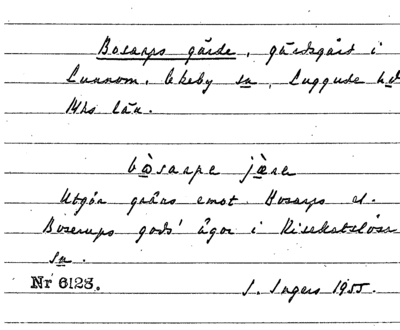 Bosarps gärde, gärdsgård i
Lunnom, Ekeby sn, Luggude hd
Mhs län.
bo̱sarpe jæ̱re
Utgör gräns emot Bosarps el.
Boserups gods' ägor i Risekatslösa
sn.
Nr 6128. I. Ingers 1955.